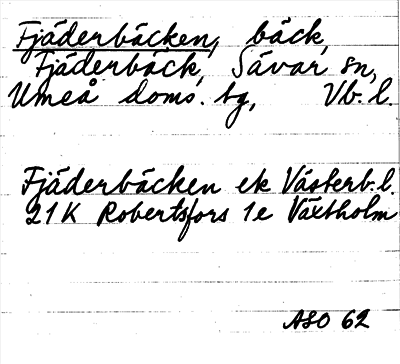 Fjäderbäcken, bäck,
Fjäderbäck, Sävar sn,
Umeå doms. tg, Vb. l.
Fjäderbäcken ek Västerb. l.
21K Robertsfors 1e Växtholm
ASO 62